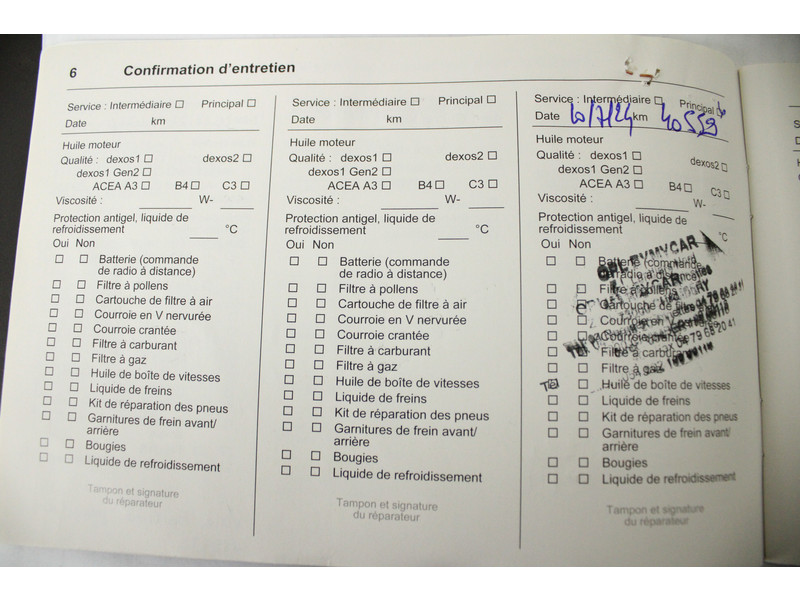 6 Confirmation d'entretien
Service : Intermédiaire ☐ Principal ☐
Date km
Huile moteur
Qualité : dexos1 ☐ dexos2 ☐
dexos1 Gen2 ☐
ACEA A3 ☐ B4 ☐ C3 ☐
Viscosité : W-
Protection antigel, liquide de
refroidissement °C
Oui Non
☐ ☐ Batterie (commande
de radio à distance)
☐ ☐ Filtre à pollens
☐ ☐ Cartouche de filtre à air
☐ ☐ Courroie en V nervurée
☐ ☐ Courroie crantée
☐ ☐ Filtre à carburant
☐ ☐ Filtre à gaz
☐ ☐ Huile de boîte de vitesses
☐ ☐ Liquide de freins
☐ ☐ Kit de réparation des pneus
☐ ☐ Garnitures de frein avant/
arrière
☐ ☐ Bougies
☐ ☐ Liquide de refroidissement
Tampon et signature
du réparateur
Service : Intermédiaire ☐ Principal ☐
Date km
Huile moteur
Qualité : dexos1 ☐ dexos2 ☐
dexos1 Gen2 ☐
ACEA A3 ☐ B4 ☐ C3 ☐
Viscosité : W-
Protection antigel, liquide de
refroidissement °C
Oui Non
☐ ☐ Batterie (commande
de radio à distance)
☐ ☐ Filtre à pollens
☐ ☐ Cartouche de filtre à air
☐ ☐ Courroie en V nervurée
☐ ☐ Courroie crantée
☐ ☐ Filtre à carburant
☐ ☐ Filtre à gaz
☐ ☐ Huile de boîte de vitesses
☐ ☐ Liquide de freins
☐ ☐ Kit de réparation des pneus
☐ ☐ Garnitures de frein avant/
arrière
☐ ☐ Bougies
☐ ☐ Liquide de refroidissement
Tampon et signature
du réparateur
Service : Intermédiaire ☐ Principal
Date /7/24 km 40559
Huile moteur
Qualité : dexos1 ☐ dexos2 ☐
dexos1 Gen2 ☐
ACEA A3 ☐ B4 ☐ C3 ☐
Viscosité : W-
Protection antigel, liquide de
refroidissement °C
Oui Non
☐ ☐ Batterie (commande
de radio à distance)
BYMYCAR
☐ ☐ Filtre à pollens
☐ Cartouche de filtre à air
☐ Courroie en V nervurée
☐ Courroie crantée
79 68 20 41
☐ Filtre à carburant
☐ ☐ Filtre à gaz
☐ Huile de boîte de vitesses
☐ ☐ Liquide de freins
☐ ☐ Kit de réparation des pneus
☐ ☐ Garnitures de frein avant/
arrière
☐ ☐ Bougies
☐ ☐ Liquide de refroidissement
Tampon et signature
du réparateur